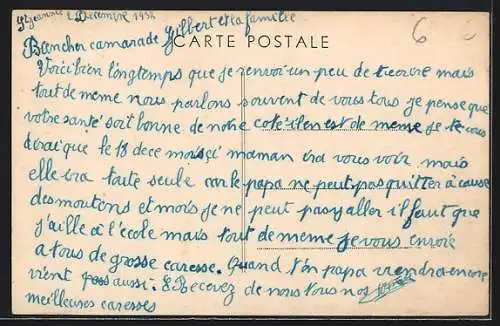 St Jeannet 2 Decembre 1932
Bien cher camarade Gilbert et la famille
CARTE POSTALE
6
Voici bien longtemps que je renvoi un peu de mais
tout de meme nous parlons souvent de vous tous je pense que
votre santé soit bonne de notre coté il en est de meme je te vous
dirai que le 18 de ce mois ci maman ira vous voir mais
elle ira toute seule car le papa ne peut pas quitter à cause
des moutons et moi je ne peut pas y aller il faut que
j'aille à l'école mais tout de meme je vous envoie
a tous de grosse caresse. Quand ton papa viendra encore
vient aussi. Recevez de nous tous nos
meilleures caresses